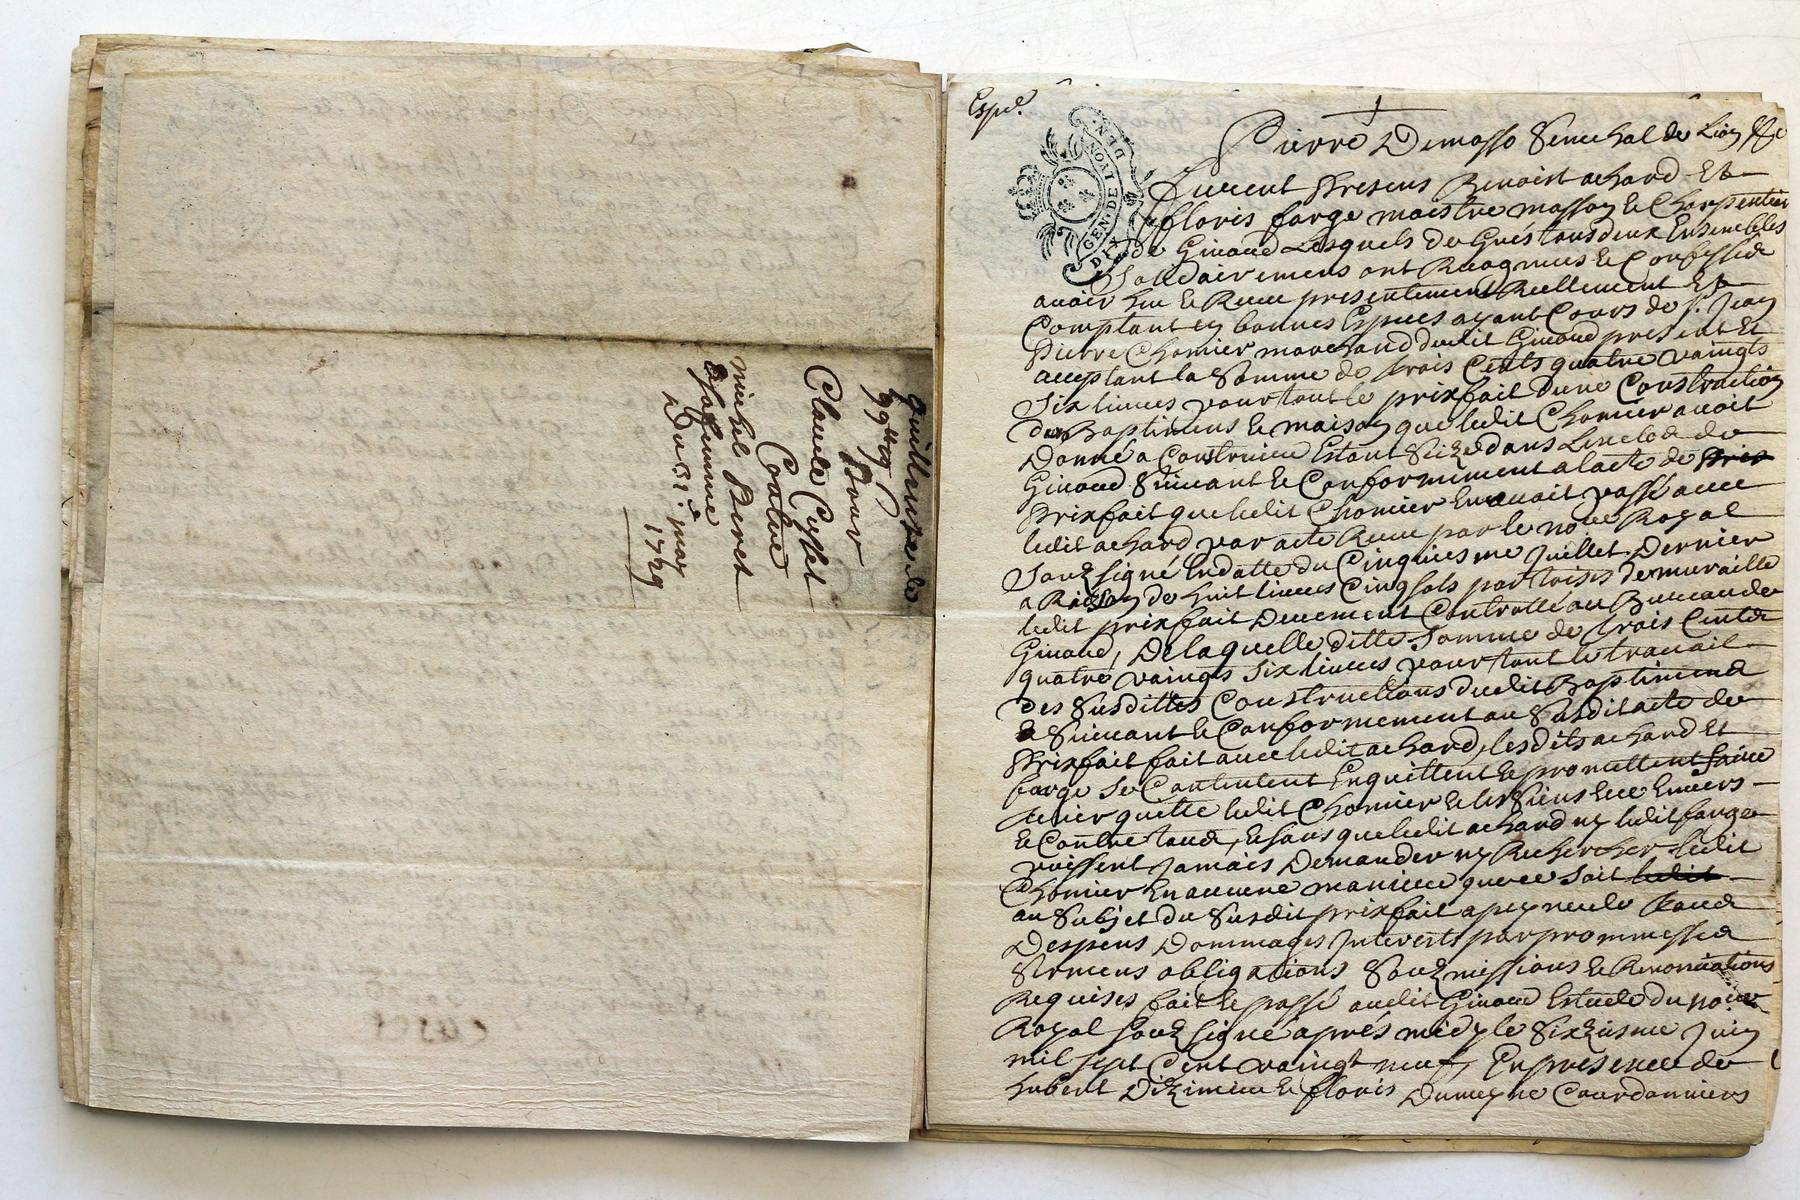 quittance de
99ᵗᵗ 19ˢ
Pour
Claude Cysset
Contre
michel Peret
et sa femme
Du 31ᵉ may
1729
Espᵉ
GEN. DE LYON
DIX DEN.
Pierre Demasso Senechal de Lion &c
furent presens Benoist achard Et
floris farge maistre masson & Charpentier
de Givaud Lesquels de Gués tous deux Ensembles
Solidairemens ont Recognus & Confessés
avoir heu & Receu presentement Reellement Et
Comptant en bonnes Especes ayant Cours de Sʳ. Jean
Pierre Chomier marchand dudit Givaud present Et
acceptant la Somme de trois Cents quatre vaingts
Six livres pour tout le prixfait dune Construction
des Baptimens & maison que ledit Chomier avoit
Donné a Construire Estant Scize dans Lenclos de
Givaud Suivant & Conformement a lacte de prix
Prixfait que ledit Chomier En avoit passé avec
ledit achard par acte Receu par le noᵉʳᵉ Royal
Souzsigné En datte du Cinquiesme Juillet Dernier
a Raison de huit livres Cinq sols par toises de muraille
ledit prixfait Deuement Controllé au Bureau de
Givaud, De laquelle ditte Somme de trois Cents
quatre vaingts Six livres pour tout le travail
des Susdittes Constructions dudit Baptimens
& Suivant & Conformement au Susdit acte de
Prixfait fait avec ledit achard, lesdits achard Et
farge Se Contentent En quittent & promettent faire
tenir quitte ledit Chomier & les Siens Et Envers
& Contre tous, & sans que ledit achard ny ledit farge
puissent Jamais Demander ny Rechercher ledit
Chomier En aucune maniere que ce soit ledit
au Subjet du Susdit prixfait a peyne de tous
Despens Dommages Interests par prommesses
Sermens obligations Souzmissions & Renonciations
Requises fait & passé audit Givaud Estude du noᵉʳᵉ
Royal Souzsigné après midy le Sixziesme Juin
mil sept Cent vaingt neuf, En presence de
hubert Dizimieu & floris Dumeyne Courdonniers